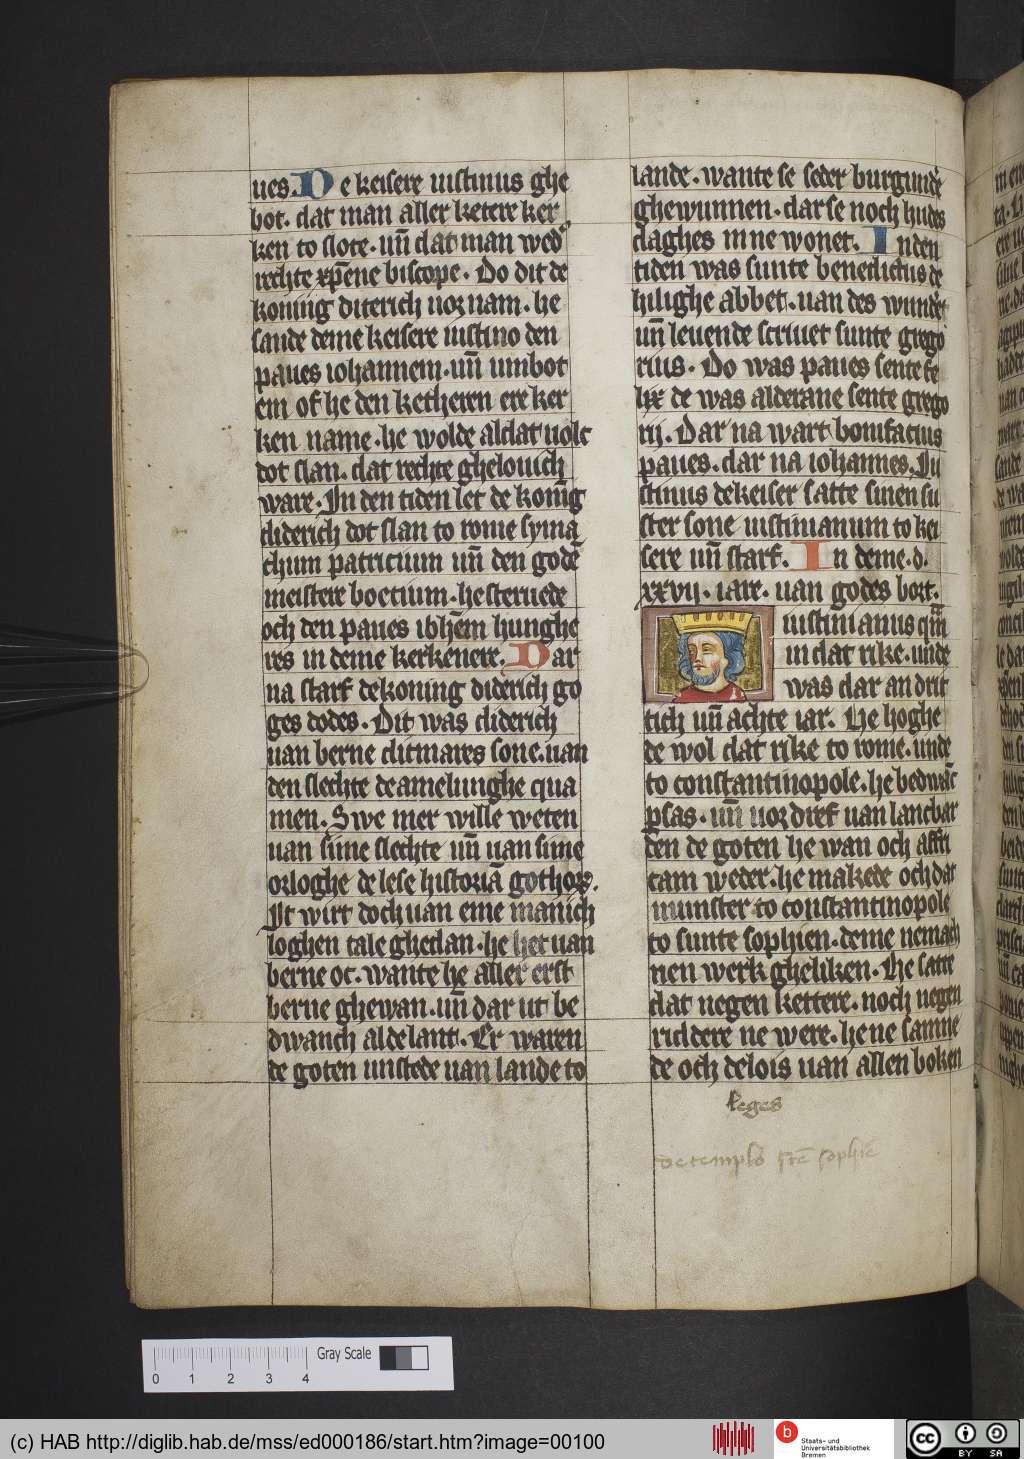 ues. De keisere iustinus ghe
bot. dat man aller ketere ker
ken to slote. un̄ dat man wed᷑
rechte xp̄ene biscope. Do dit de
koning diterich uornam. he
sande deme keisere iustino den
paues iohannem. un̄ umbot
em of he den ketheren ere ker
ken name. he wolde al dat uolc
dot slan. dat rechte ghelouich
ware. In den tiden let de konīg
diderich dot slan to rome syma
chum patricium un̄ den godē
meistere boetium. he steruede
och den paues ioh̄em hunghe
res in deme kerkenere. Dar
na starf de koning diderich go
ges dodes. Dit was diderich
uan berne ditmares sone. uan
den slechte de amelunghe qua
men. Swe mer wille weten
uan sime slechte un̄ uan sime
orloghe de lese historiā gothoꝝ.
It wirt doch uan eme manich
loghen tale ghedan. he het uan
berne oc. wante he aller erst
berne ghewan. un̄ dar ut be
dwanch al de lant. Er waren
de goten unstede uan lande to
lande. wante se seder burgundē
ghewunnen. dar se noch hudes
daghes inne wonet. In den
tiden was sunte benedictus de
hilighe abbet. uan des wundēr
un̄ leuende scriuet sunte grego
rius. Do was paues sente fe
lix de was alderane sente grego
rij. Dar na wart bonifacius
paues. dar na iohannes. Iu
stinus de keiser satte sinen su
ster sone iustinianum to kei
sere un̄ starf. In deme. d.
xxvij. iare. uan godes bort.
iustinianus quā
in dat rike. unde
was dar an drit
tich un̄ achte iar. He hoghe
de wol dat rike to rome. unde
to constantinopole. he bedwāc
psas. un̄ uor dref uan lancbar
den de goten he wan och affri
cam weder. he makede och dat
munster to constantinopole
to sunte sophien. deme nemach
nen werk gheliken. He satte
dat negen kettere. noch negen
ricldere ne were. he ne samne
de och de lois uan allen boken
leges
de templo sc̄e sophie
Gray Scale
0 1 2 3 4
(c) HAB http://diglib.hab.de/mss/ed000186/start.htm?image=00100
b
Staats- und
Universitätsbibliothek
Bremen
cc
BY SA